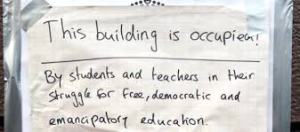 This building is occupied!
By students and teachers in their
struggle for free, democratic and
emancipatory education.